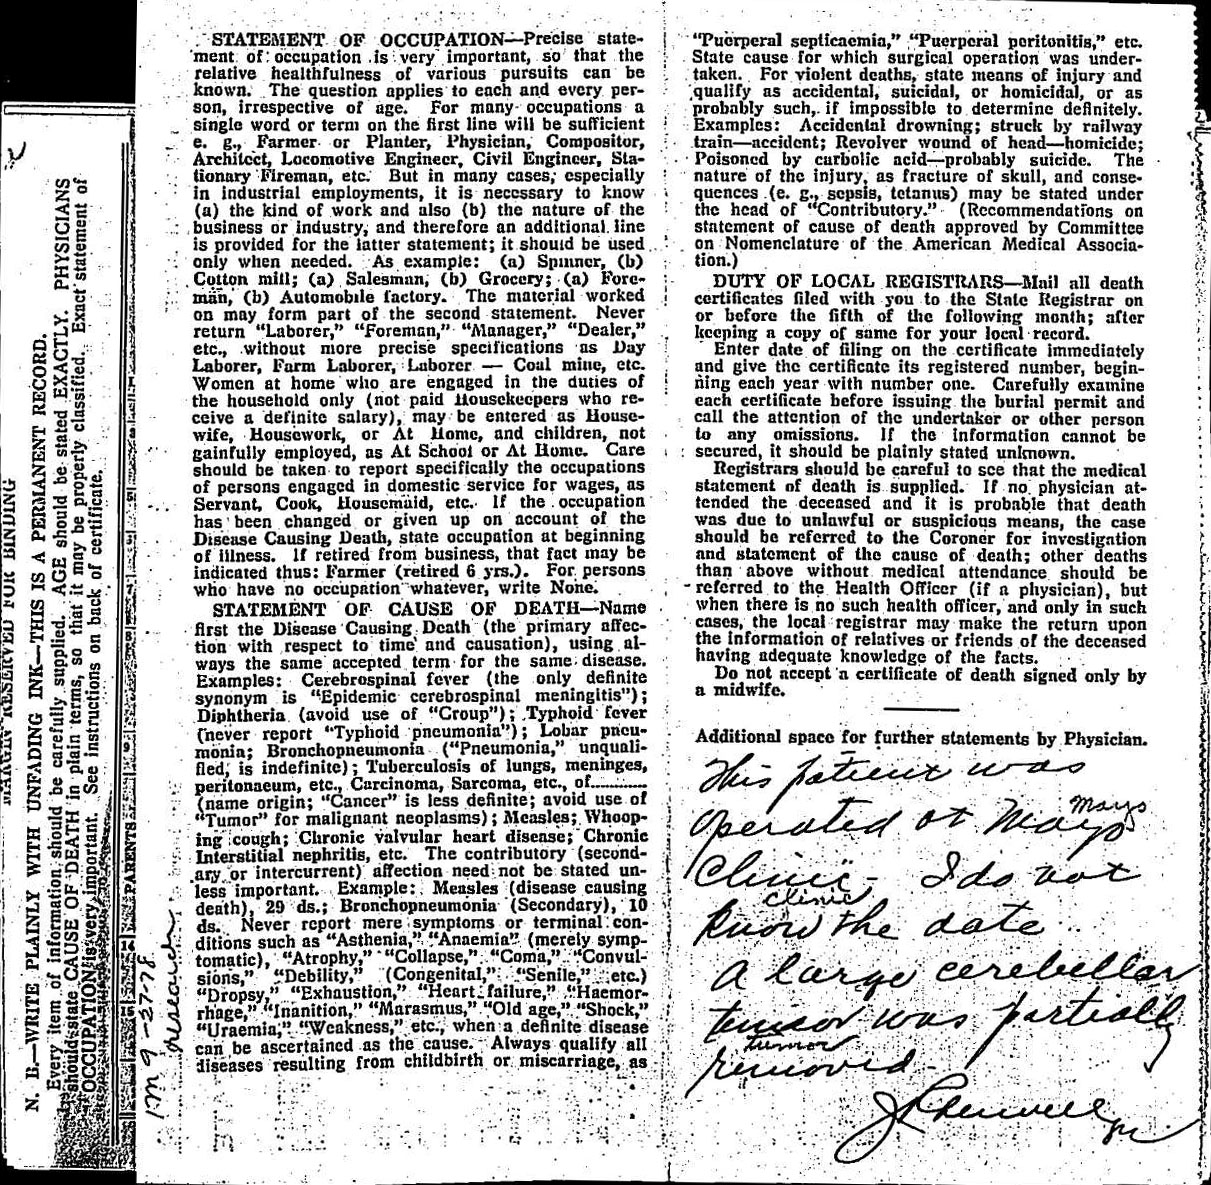 MARGIN RESERVED FOR BINDING
N. B.—WRITE PLAINLY WITH UNFADING INK—THIS IS A PERMANENT RECORD.
Every item of information should be carefully supplied. AGE should be stated EXACTLY. PHYSICIANS
should state CAUSE OF DEATH in plain terms, so that it may be properly classified. Exact statement of
OCCUPATION is very important. See instructions on back of certificate.
PARENTS
1M 9-27-78
research
STATEMENT OF OCCUPATION—Precise state-
ment of occupation is very important, so that the
relative healthfulness of various pursuits can be
known. The question applies to each and every per-
son, irrespective of age. For many occupations a
single word or term on the first line will be sufficient
e. g., Farmer or Planter, Physician, Compositor,
Architect, Locomotive Engineer, Civil Engineer, Sta-
tionary Fireman, etc. But in many cases, especially
in industrial employments, it is necessary to know
(a) the kind of work and also (b) the nature of the
business or industry, and therefore an additional line
is provided for the latter statement; it should be used
only when needed. As example: (a) Spinner, (b)
Cotton mill; (a) Salesman, (b) Grocery; (a) Fore-
man, (b) Automobile factory. The material worked
on may form part of the second statement. Never
return "Laborer," "Foreman," "Manager," "Dealer,"
etc., without more precise specifications as Day
Laborer, Farm Laborer, Laborer — Coal mine, etc.
Women at home who are engaged in the duties of
the household only (not paid Housekeepers who re-
ceive a definite salary), may be entered as House-
wife, Housework, or At Home, and children, not
gainfully employed, as At School or At Home. Care
should be taken to report specifically the occupations
of persons engaged in domestic service for wages, as
Servant, Cook, Housemaid, etc. If the occupation
has been changed or given up on account of the
Disease Causing Death, state occupation at beginning
of illness. If retired from business, that fact may be
indicated thus: Farmer (retired 6 yrs.). For persons
who have no occupation whatever, write None.
STATEMENT OF CAUSE OF DEATH—Name
first the Disease Causing Death (the primary affec-
tion with respect to time and causation), using al-
ways the same accepted term for the same disease.
Examples: Cerebrospinal fever (the only definite
synonym is "Epidemic cerebrospinal meningitis");
Diphtheria (avoid use of "Croup"); Typhoid fever
(never report "Typhoid pneumonia"); Lobar pneu-
monia; Bronchopneumonia ("Pneumonia," unquali-
fied, is indefinite); Tuberculosis of lungs, meninges,
peritonaeum, etc., Carcinoma, Sarcoma, etc., of............
(name origin; "Cancer" is less definite; avoid use of
"Tumor" for malignant neoplasms); Measles; Whoop-
ing cough; Chronic valvular heart disease; Chronic
Interstitial nephritis, etc. The contributory (second-
ary or intercurrent) affection need not be stated un-
less important. Example: Measles (disease causing
death), 29 ds.; Bronchopneumonia (Secondary), 10
ds. Never report mere symptoms or terminal con-
ditions such as "Asthenia," "Anaemia" (merely symp-
tomatic), "Atrophy," "Collapse," "Coma," "Convul-
sions," "Debility," (Congenital," "Senile," etc.)
"Dropsy," "Exhaustion," "Heart failure," "Haemor-
rhage," "Inanition," "Marasmus," "Old age," "Shock,"
"Uraemia," "Weakness," etc., when a definite disease
can be ascertained as the cause. Always qualify all
diseases resulting from childbirth or miscarriage, as
"Puerperal septicaemia," "Puerperal peritonitis," etc.
State cause for which surgical operation was under-
taken. For violent deaths, state means of injury and
qualify as accidental, suicidal, or homicidal, or as
probably such, if impossible to determine definitely.
Examples: Accidental drowning; struck by railway
train—accident; Revolver wound of head—homicide;
Poisoned by carbolic acid—probably suicide. The
nature of the injury, as fracture of skull, and conse-
quences (e. g., sepsis, tetanus) may be stated under
the head of "Contributory." (Recommendations on
statement of cause of death approved by Committee
on Nomenclature of the American Medical Associa-
tion.)
DUTY OF LOCAL REGISTRARS—Mail all death
certificates filed with you to the State Registrar on
or before the fifth of the following month; after
keeping a copy of same for your local record.
Enter date of filing on the certificate immediately
and give the certificate its registered number, begin-
ning each year with number one. Carefully examine
each certificate before issuing the burial permit and
call the attention of the undertaker or other person
to any omissions. If the information cannot be
secured, it should be plainly stated unknown.
Registrars should be careful to see that the medical
statement of death is supplied. If no physician at-
tended the deceased and it is probable that death
was due to unlawful or suspicious means, the case
should be referred to the Coroner for investigation
and statement of the cause of death; other deaths
than above without medical attendance should be
referred to the Health Officer (if a physician), but
when there is no such health officer, and only in such
cases, the local registrar may make the return upon
the information of relatives or friends of the deceased
having adequate knowledge of the facts.
Do not accept a certificate of death signed only by
a midwife.
Additional space for further statements by Physician.
This patient was
Mayo
operated at Mayo
Clinic - I do not
clinic
know the date
A large cerebellar
tumor was partially
tumor
removed.